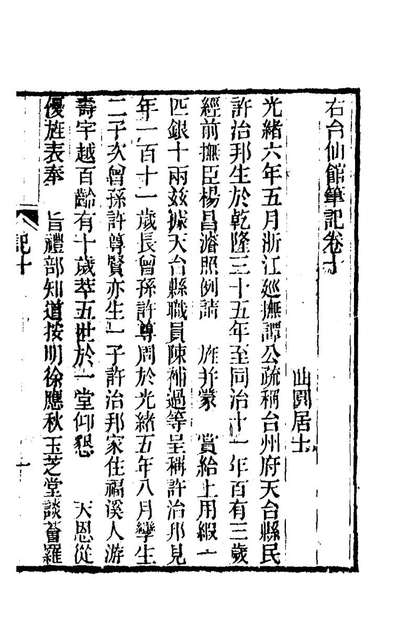 右台仙館筆記卷十
曲園居士
光緒六年五月浙江巡撫譚公疏稱台州府天台縣民
許治邦生於乾隆三十五年至同治十一年百有三歲
經前撫臣楊昌濬照例請 旌并蒙 賞給上用緞一
匹銀十兩兹據天台縣職員陳補過等呈稱許治邦見
年一百十一歲長曾孫許尊周於光緒五年八月孿生
二子次曾孫許尊賢亦生一子許治邦家住福溪人游
壽宇越百齡有十歲萃五世於一堂仰懇 天恩從
優旌表奉 旨禮部知道按明徐應秋玉芝堂談薈羅
記十